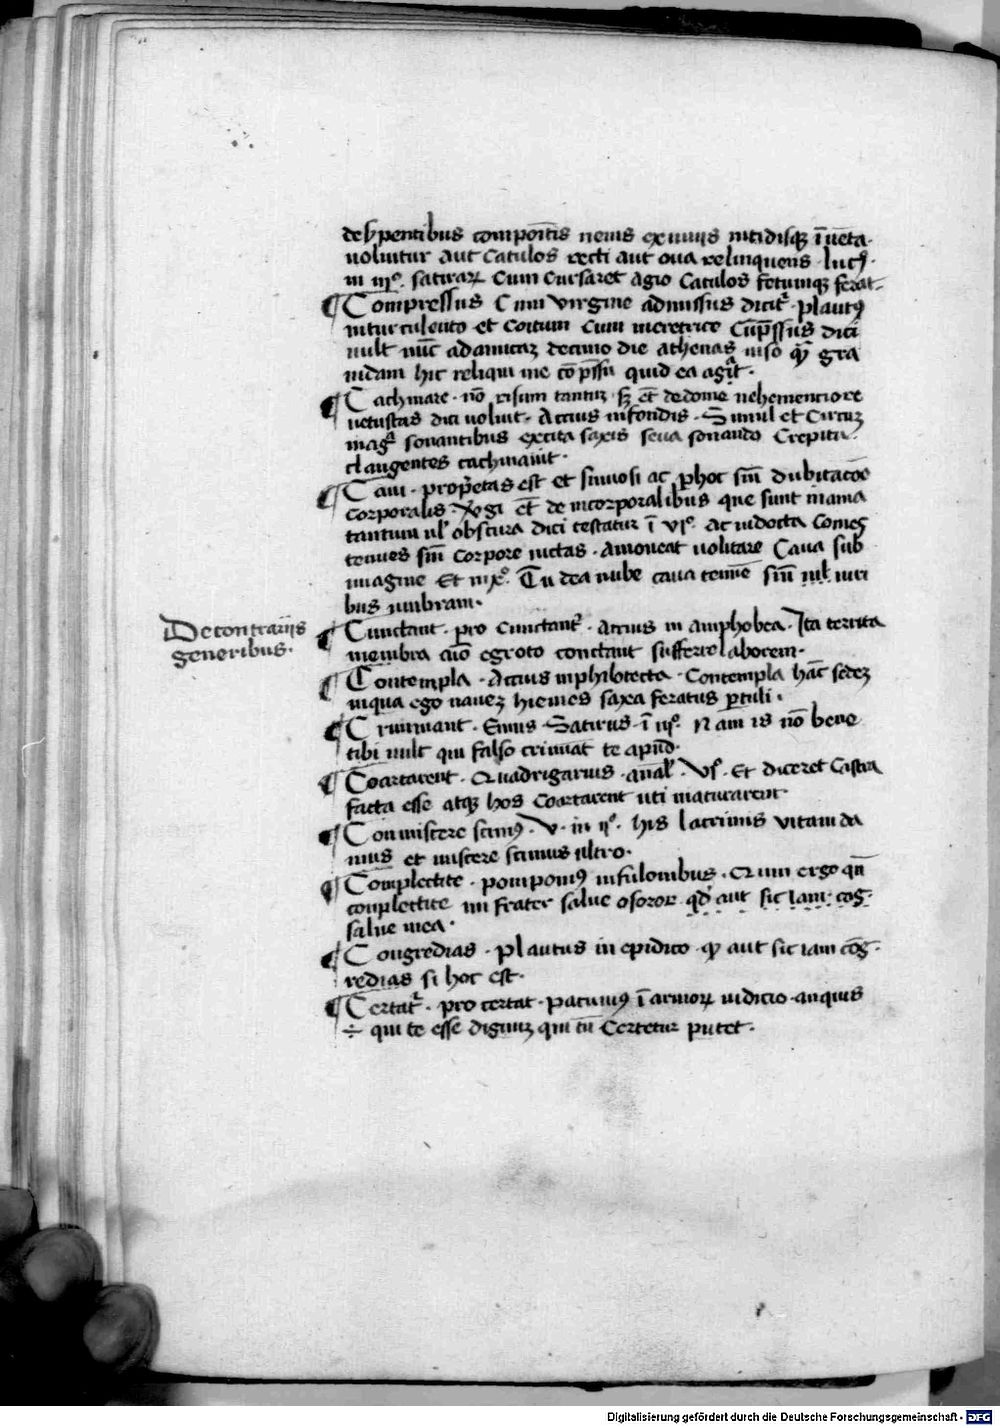 de serpentibus compositis nevis exuviis nitidisqz īuēta·
volvitur Aut Catulos recti aut ova relinquens · Lucꝫ·
in iijº· satirarꝝ Cum Cursaret agio Catulos fetumqz ferat·
¶ Compressus Cum virgine admissus dicit᷑ · plautꝰ
inturculento · et Coitum Cum meretrice Cūp̄ssus dici
vult nūc ad amicaz decimo die athenas viso qꝫ gra
vidam hic reliqui me cōp̄ssu quid ea agit᷑·
¶ Cachinare · nō risum tantuz sꝫ et̄ de dome vehementiore
vetustas dici voluit · Accius infondis · Simul et Circuz
magᷓ sonantibus excita saxis seva sonando Crepitu
clangentes cachinant·
¶ Cavi · prop̄etas est et sinuosi ac p̱hoc sm̄ dubitacōē
corporalis· x̄gi et̄ de incorporalibus que sunt inania
tantum vl obscura dici testatur ī vjº· Ac indocta Comes
tenues sm̄ Corpore victas · Amoveat volitare Cava sub
imagine Et in xº· Tu dea nube cava tenuē sm̄ vil viri
bus umbram·
De contrariis
generibus·
¶ Cunctant · pro Cunctant᷑ · Accius in Amphobea · Ita territa
membra aīo egroto cunctant sufferre laborem·
¶ Contempla · Accius in philotecta · Contempla hāc sedez
in qua ego novez hiemes saxa stratus p̱tuli·
¶ Criminant · Enius · Satirus · ī iijº· Nam is nō bene
tibi vult qui falso criminat te apud·
¶ Coartarent · Quadrigarius · anal · vº· Et diceret Castra
facta esse atqz hos Coartarent uti maturarent·
¶ Conviscere scimꝰ · v· in ijº· his lacrimis vitam da
mus et miscere scimus ultro·
¶ Complectite · pomponiꝰ in fulonibus · Qum ergo qn̄
conplectite mi frater salve o soror qd aut sic iam cog·
salve mea·
¶ Congredias · Plautus in epidico · qꝫ aut sic iam cōg·
redias si hoc est·
¶ Certat᷑ · pro certat · pacuviꝰ ī armorꝝ iudicio · an quis
÷ qui te esse dignuz qui cū Certetur putet·
Digitalisierung gefördert durch die Deutsche Forschungsgemeinschaft - DFG